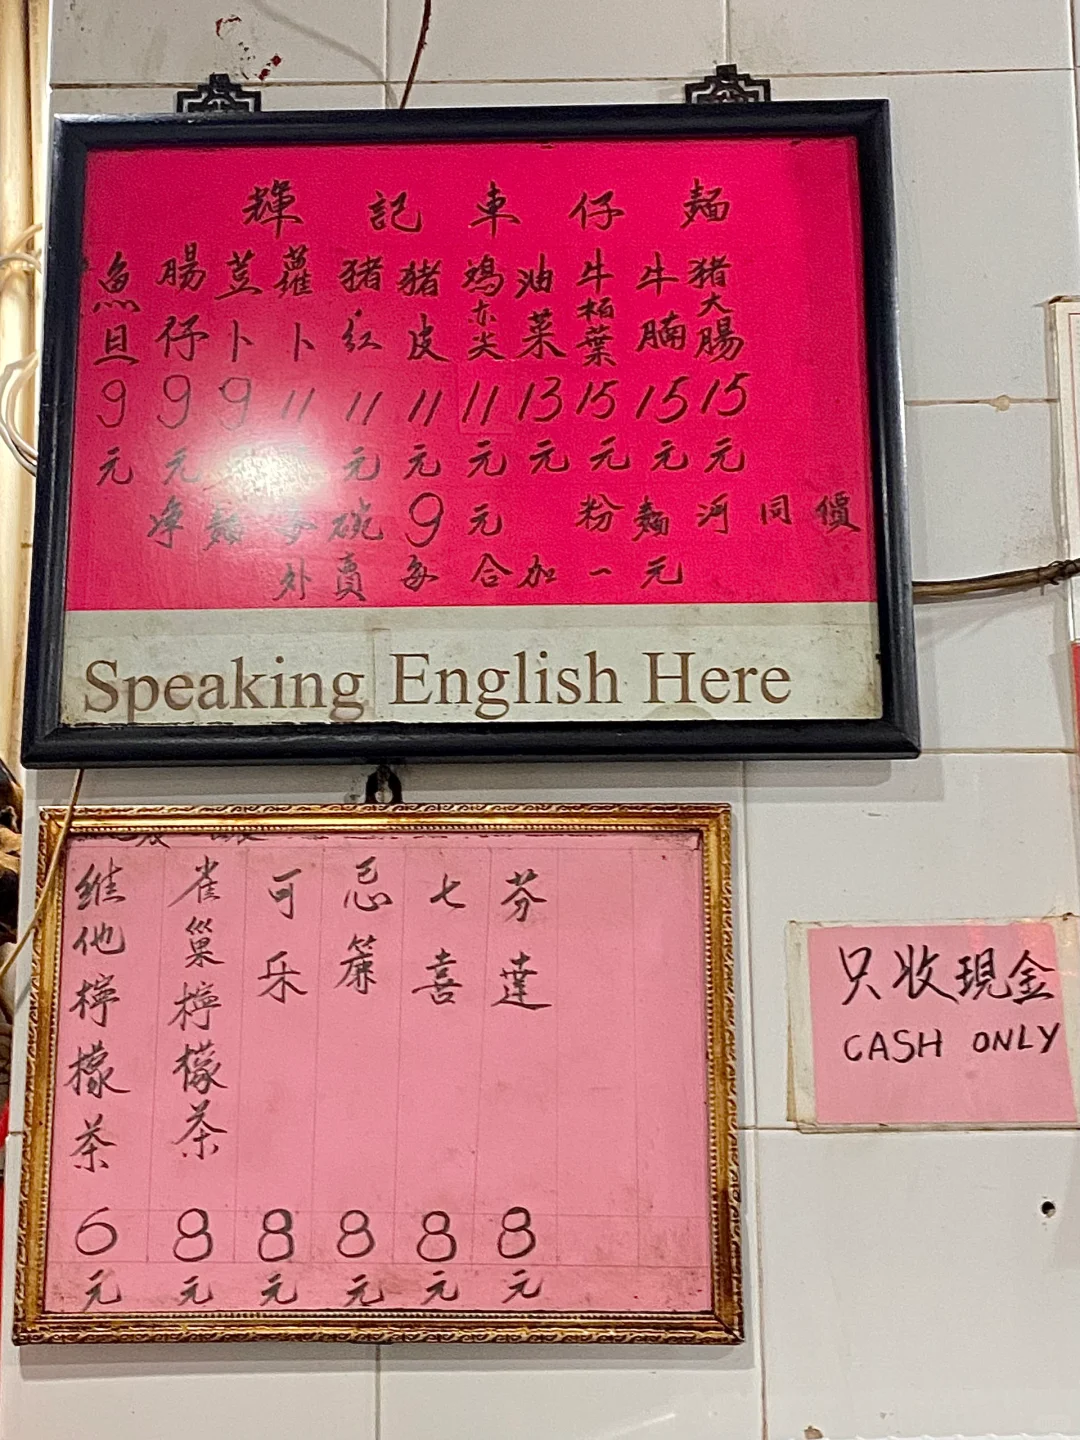 輝記車仔麵
魚旦9元
腸仔9元
荳卜9元
蘿卜11元
猪红11元
猪皮11元
鸡亦尖11元
油菜13元
牛栢葉15元
牛腩15元
猪大腸15元
净麵每碗9元 粉麵河同價
外賣每合加一元
Speaking English Here
维他檸檬茶6元
雀巢檸檬茶8元
可乐8元
忌簾8元
七喜8元
芬達8元
只收現金
CASH ONLY